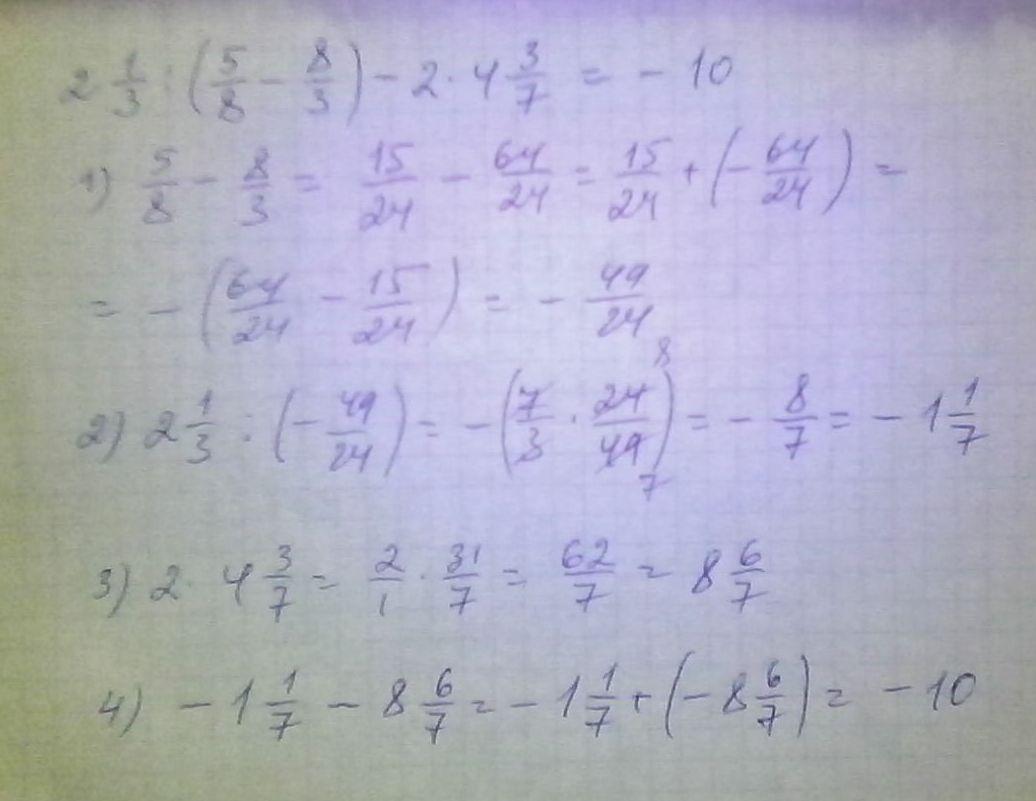 2 1/3 : (5/8 - 8/3) - 2 · 4 3/7 = - 10
1) 5/8 - 8/3 = 15/24 - 64/24 = 15/24 + (- 64/24) =
= - (64/24 - 15/24) = - 49/24
2) 2 1/3 : (- 49/24) = - (7/3 · 24/49) 8 7 = - 8/7 = - 1 1/7
3) 2 · 4 3/7 = 2/1 · 31/7 = 62/7 = 8 6/7
4) - 1 1/7 - 8 6/7 = - 1 1/7 + (- 8 6/7) = - 10